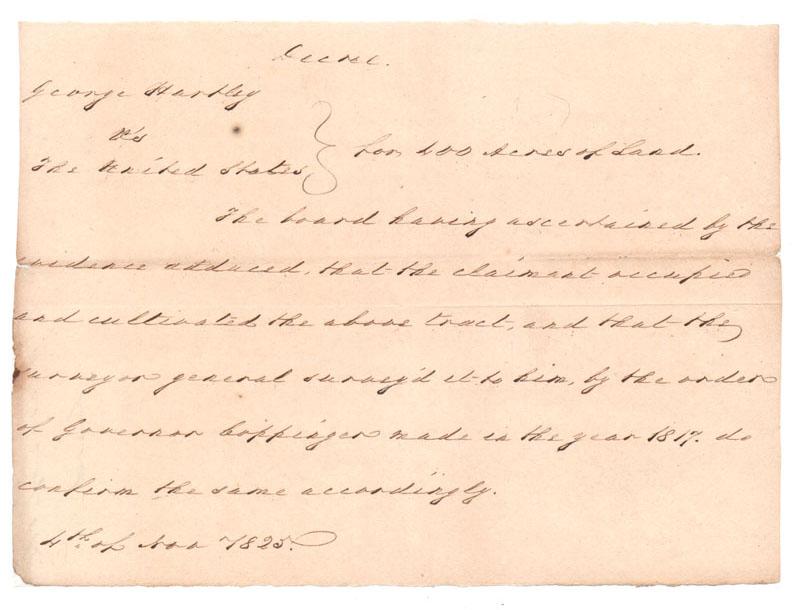 Decree.
George Hartley
vs
The United States,
for 400 Acres of Land.
The board having ascertained by the
evidence adduced, that the claimant occupied
and cultivated the above tract, and that the
surveyor general survey'd it to him, by the order
of Governor Coppinger made in the year 1817. do
confirm the same accordingly.
4th of Nov 1825.